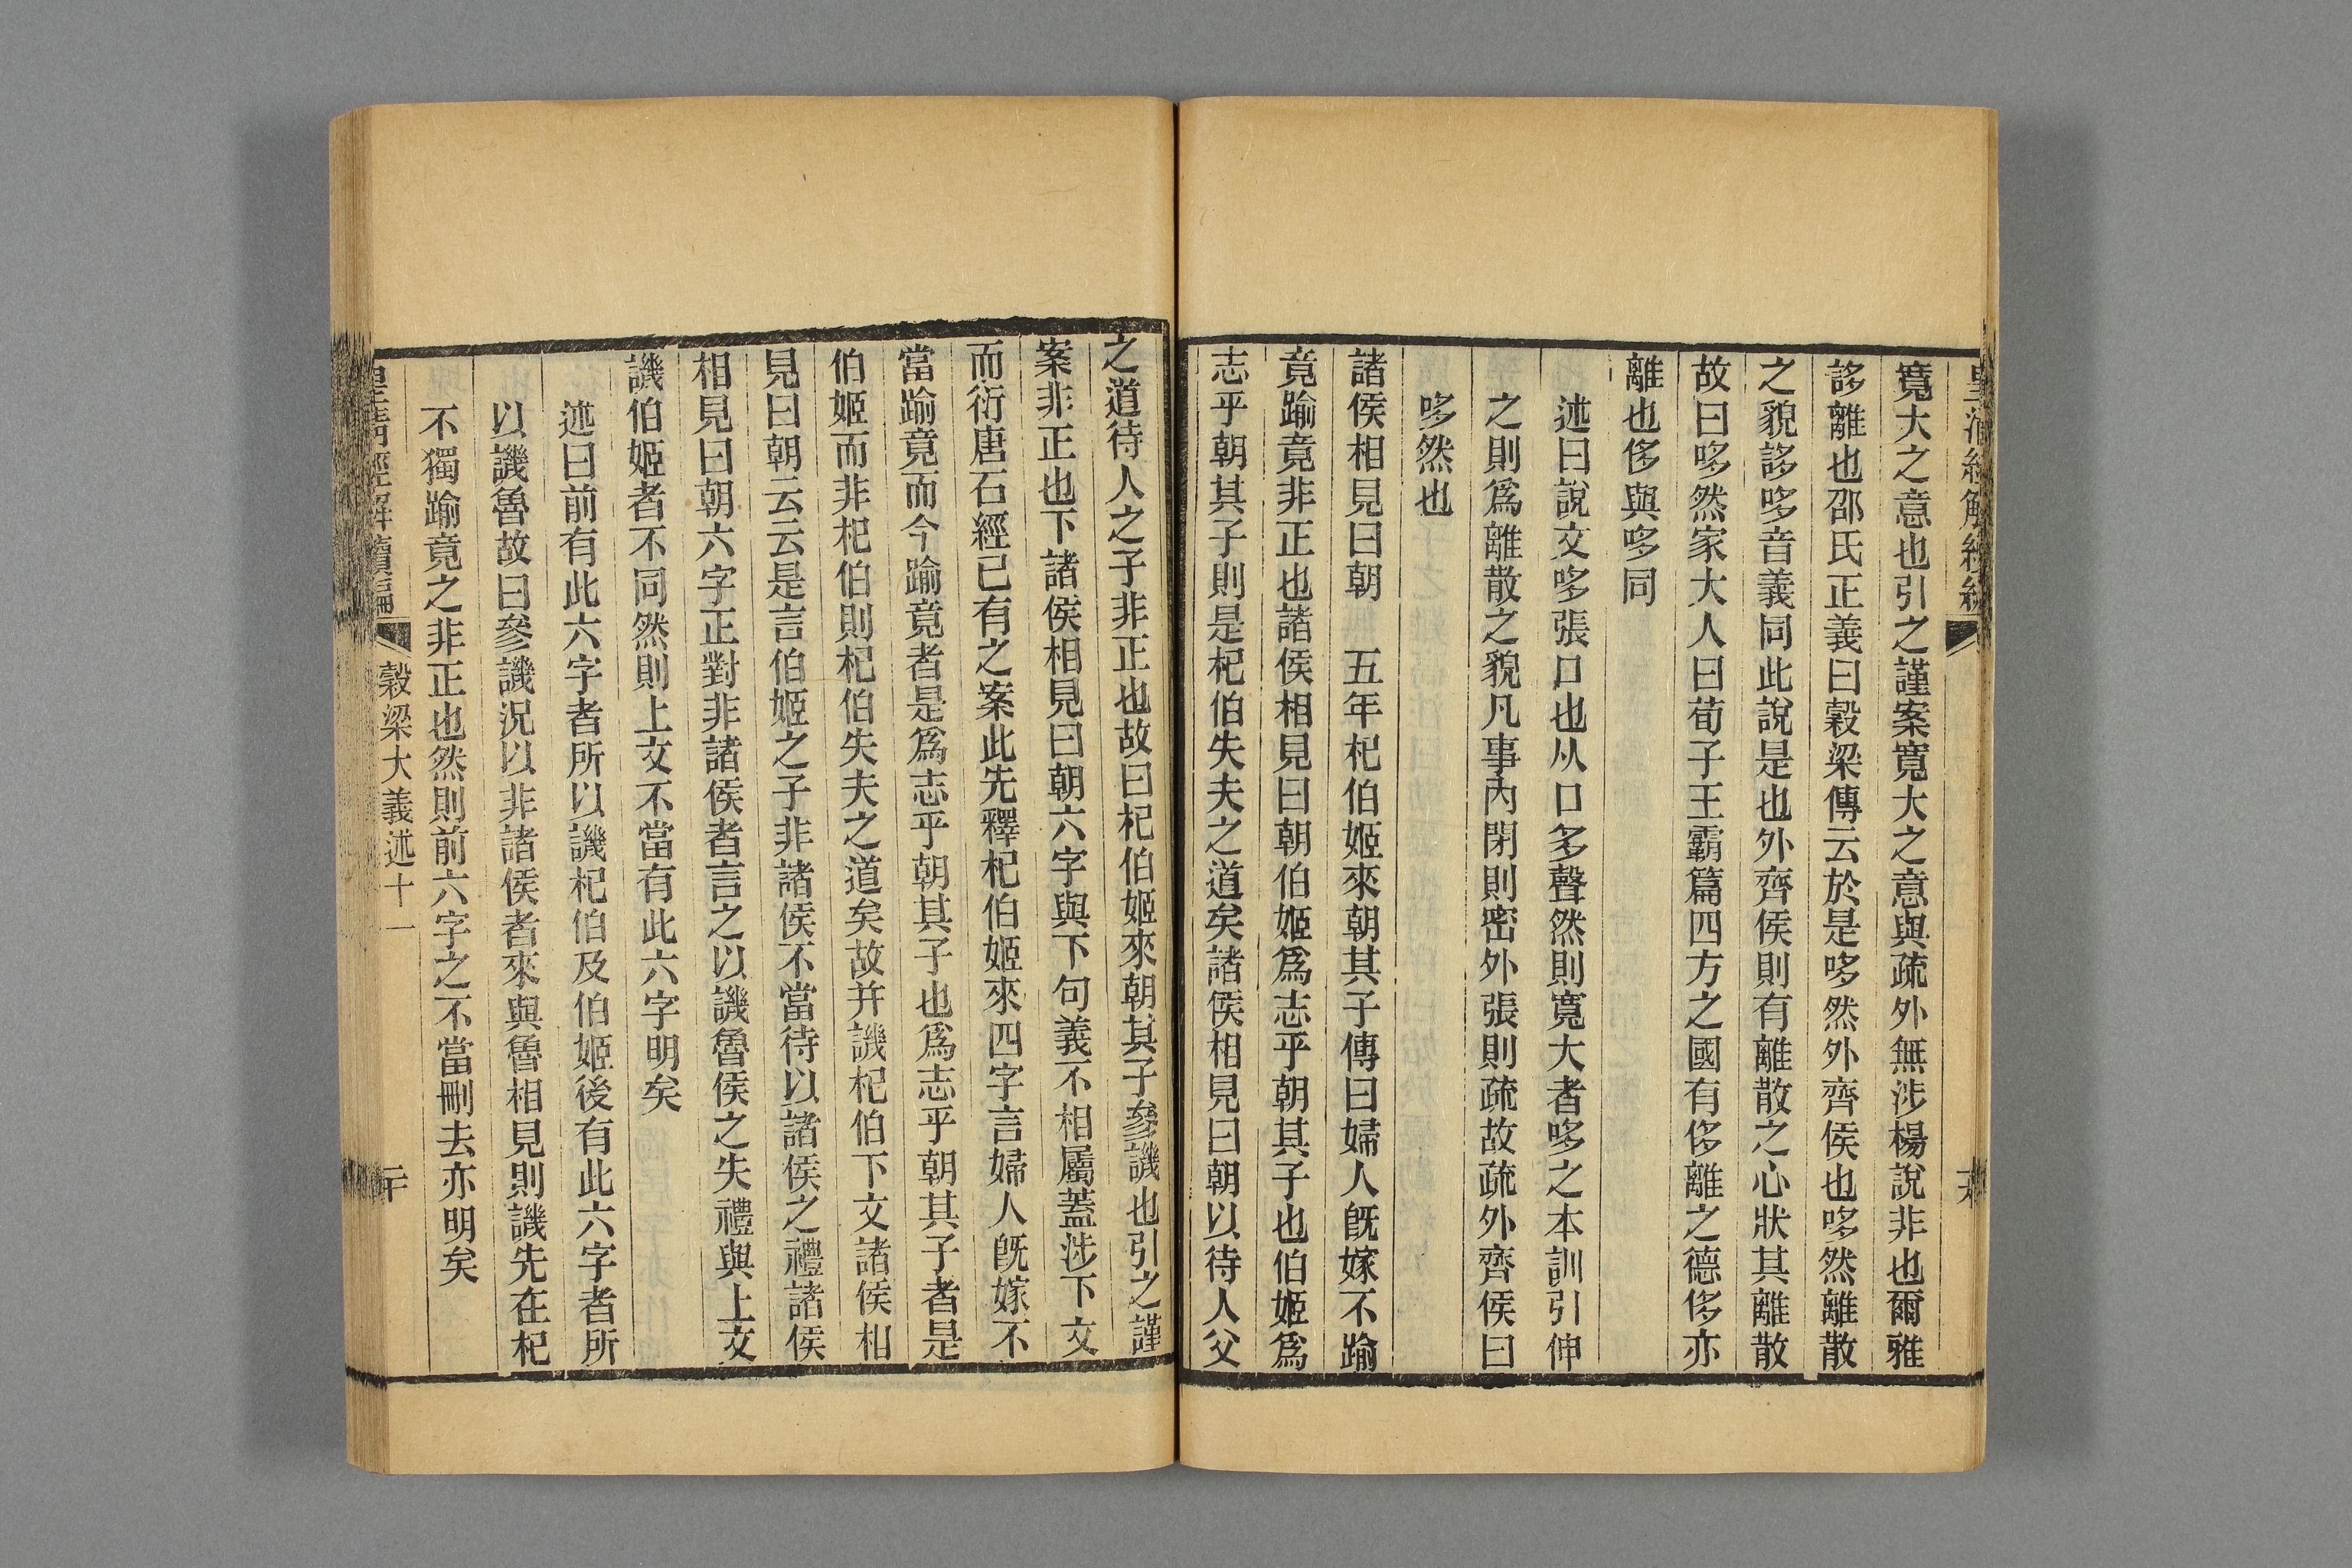 寬大之意也引之謹案寬大之意與疏外無涉楊說非也爾雅
誃離也邵氏正義曰穀梁傳云於是哆然外齊侯也哆然離散
之貌誃哆音義同此說是也外齊侯則有離散之心狀其離散
故曰哆然家大人曰荀子王霸篇四方之國有侈離之德侈亦
離也侈與哆同
述曰說文哆張口也从口多聲然則寬大者哆之本訓引伸
之則爲離散之貌凡事內閉則密外張則疏故疏外齊侯曰
哆然也
諸侯相見曰朝 五年杞伯姬來朝其子傳曰婦人旣嫁不踰
竟踰竟非正也諸侯相見曰朝伯姬爲志乎朝其子也伯姬爲
志乎朝其子則是杞伯失夫之道矣諸侯相見曰朝以待人父
之道待人之子非正也故曰杞伯姬來朝其子參譏也引之謹
案非正也下諸侯相見曰朝六字與下句義不相屬蓋涉下文
而衍唐石經已有之案此先釋杞伯姬來四字言婦人旣嫁不
當踰竟而今踰竟者是爲志乎朝其子也爲志乎朝其子者是
伯姬而非杞伯則杞伯失夫之道矣故并譏杞伯下文諸侯相
見曰朝云云是言伯姬之子非諸侯不當待以諸侯之禮諸侯
相見曰朝六字正對非諸侯者言之以譏魯侯之失禮與上文
譏伯姬者不同然則上文不當有此六字明矣
述曰前有此六字者所以譏杞伯及伯姬後有此六字者所
以譏魯故曰參譏況以非諸侯者來與魯相見則譏先在杞
不獨踰竟之非正也然則前六字之不當刪去亦明矣
皇清經解續編 穀梁大義述十一 二十